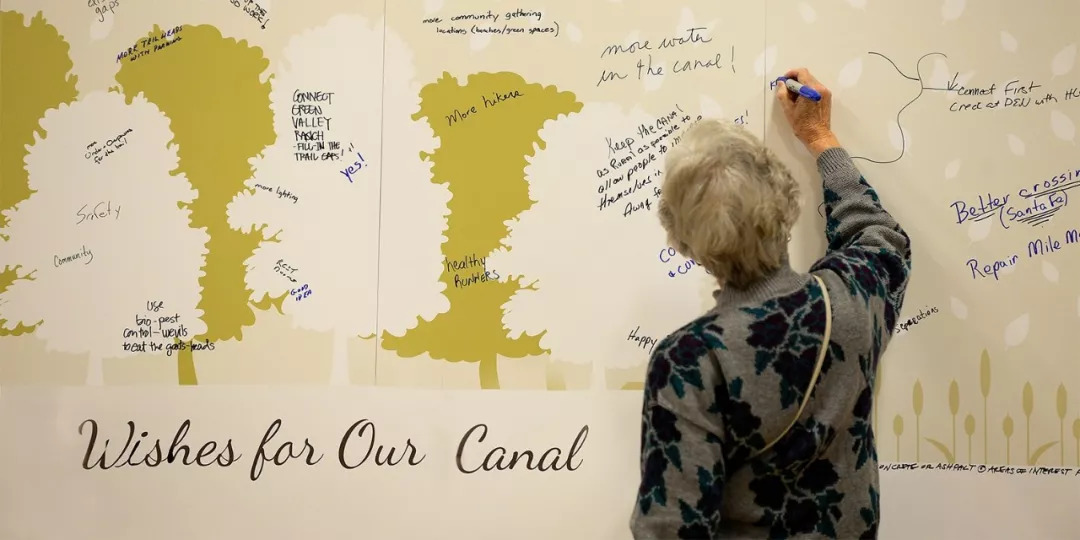 gaps
MORE TRAIL HEADS
WITH PARKING
more community gathering
locations (benches/green spaces)
more water
in the canal!
CONNECT
GREEN
VALLEY
RANCH
-FILL-IN THE
TRAIL GAPS!
yes!
More hikers
Keep the CANAL
as Rural as possible to
allow people to
themselves in
Away
Connect First
Creek at DEN with
more
for the
Safety
Community
more lighting
REST
GOOD
IDEA
healthy
RUNNERS
Better crossin
(Santa Fe)
Repair Mile M
use
bio-pest
control-wevils
to eat the goats-heads
Happy
Wishes for Our Canal
ONCRETE OR ASPHALT @ AREAS OF INTEREST